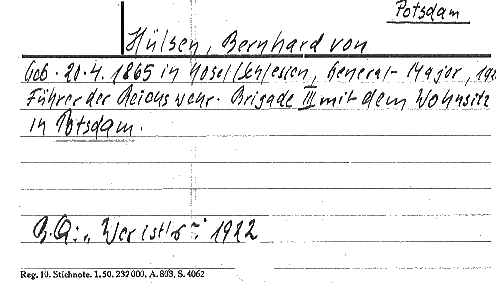 Potsdam
Hülsen, Bernhard von
Geb. 20.4. 1865 in Kosel/Schlesien, General-Major, 192
Führer der Reichswehr-Brigade III mit dem Wohnsitz
in Potsdam.
B.Q: „Wer ist's" 1922
Reg. 10. Stichnote. 1.50. 232000. A. 803, S. 4062